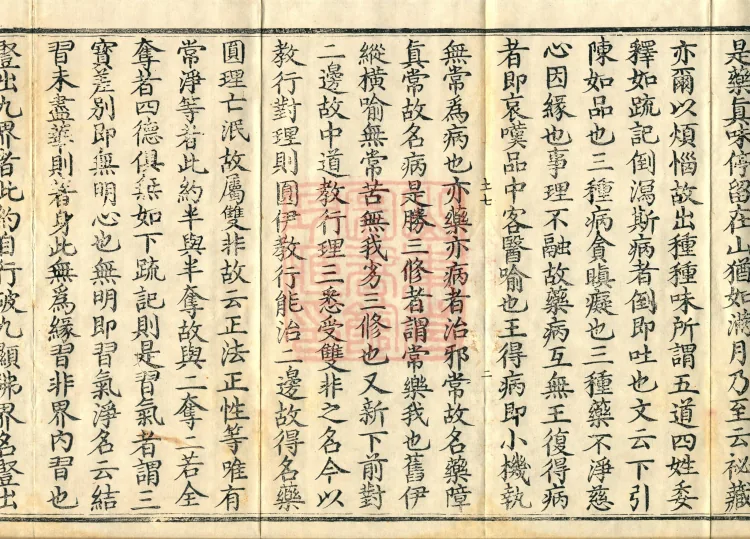 是藥真味停留在山猶如滿月乃至云祕藏
亦爾以煩惱故出種種味所謂五道四姓委
釋如䟽記倒瀉斯病者倒即吐也文云下引
陳如品也三種病貪瞋癡也三種藥不淨慈
心因緣也事理不融故藥病互無王復得病
者即哀嘆品中客醫喻也王得病即小機執
無常為病也亦藥亦病者治邪常故名藥障
真常故名病是勝三修者謂常樂我也舊伊
縱橫喻無常苦無我劣三修也又新下前對
二邊故中道教行理三悉受雙非之名今以
教行對理則圓伊教行能治二邊故得名藥
圓理亡泯故屬雙非故云正法正性等唯有
常淨等者此約半與半奪故與二奪二若全
奪者四德俱無如下䟽記則是習氣者謂三
寶差別即無明心也無明即習氣淨名云結
習未盡華則著身此無為緣習非界內習也
豎出九界者此約自行破九顯佛界名豎出
土七
二